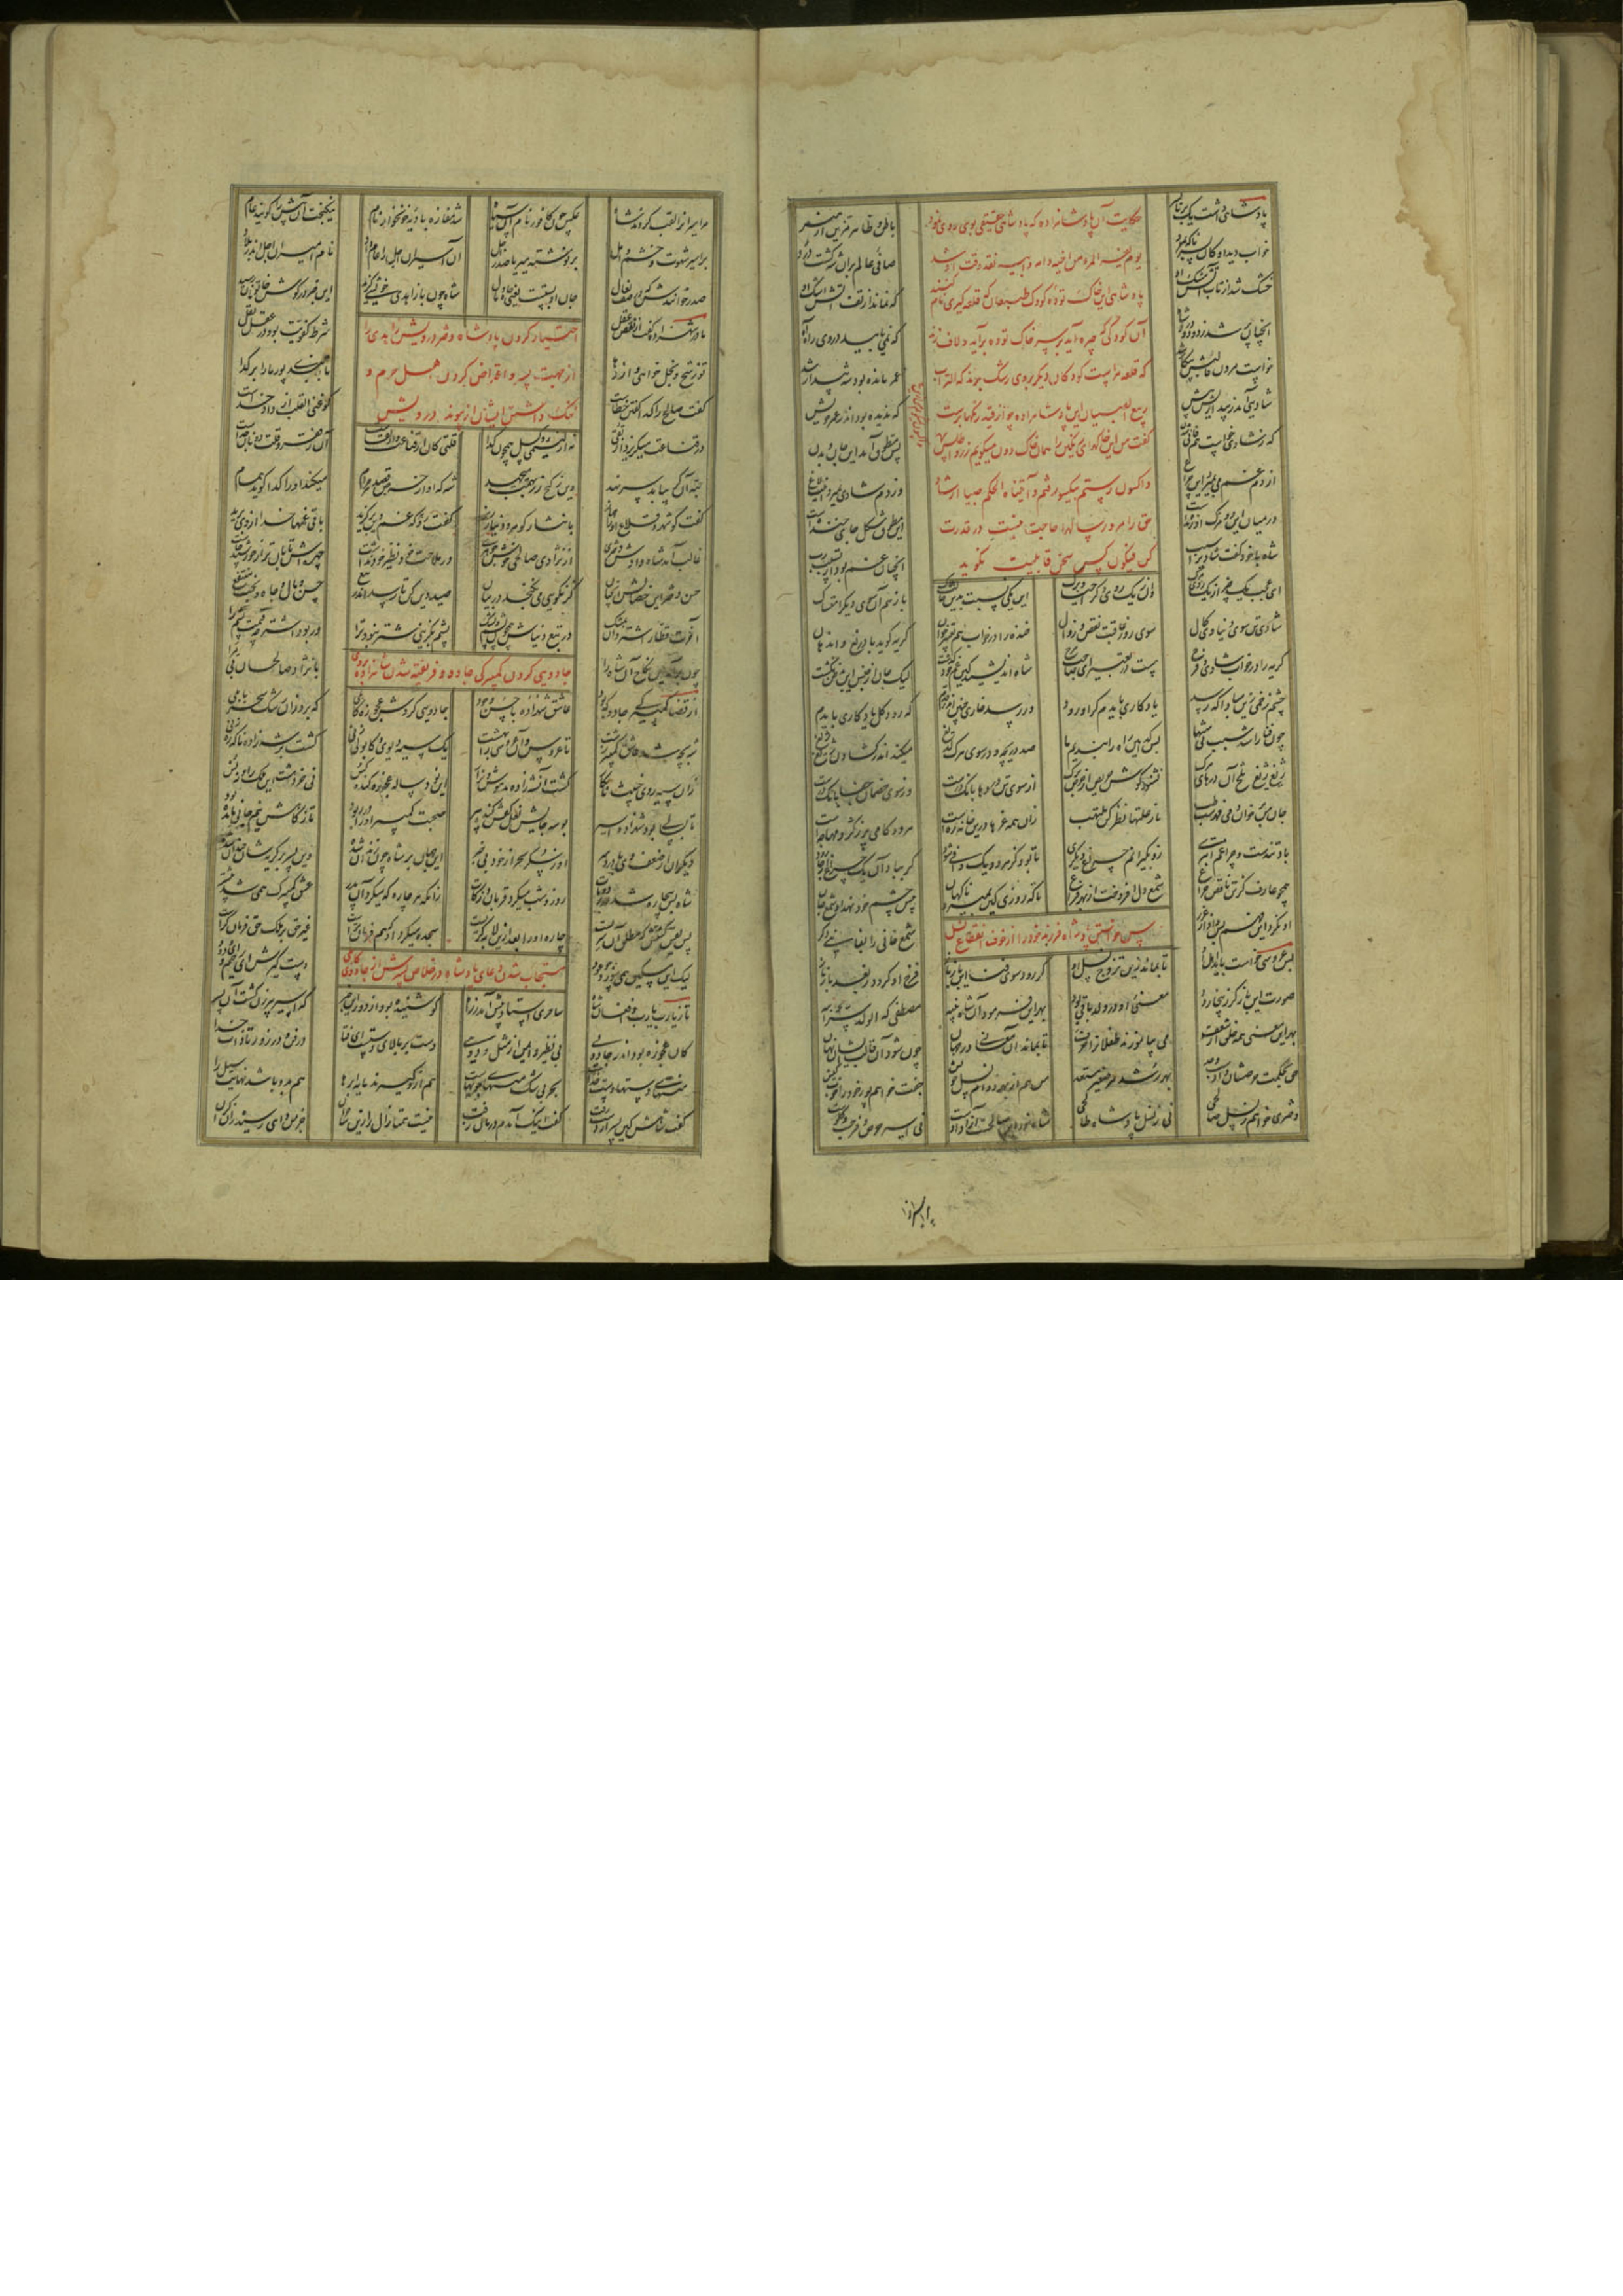 پادشاهی داشت یک برنا پسر
باطن و ظاهر مزین از هنر
خواب دید او کان پسر ناگه بمرد
صافی عالم بران شه گشت درد
خشک شد از تاب آتش مشک او
که نماند از تف آتش اشک او
آنچنان پر شد ز دود و درد شاه
که نمی یابید در وی راه آه
خواست مردن قالبش بیکار شد
عمر مانده بود شه بیدار شد
شادیی آمد ز بیداریش پیش
که ندیده بود اندر عمر خویش
که ز شادی خواست هم فانی شدن
پس مطوق آمد این جان و بدن
از دم غم می بمیرد این چراغ
وز دم شادی بمیرد اینت لاغ
در میان این دو مرگ او زنده است
این مطوق شکل جای خنده است
شاه با خود گفت شادی را سبب
آنچنان غم بود از تسبیب رب
حکایت آن پادشاهزاده که پادشاهی حقیقی بوی روی نمود
یوم یفر المرء من اخیه و امه و ابیه نقد وقت او شد
پادشاهی این خاک توده کودک طبعان که قلعه گیری نام کنند
آن کودک که چیره آید بر سر خاک توده برآید و لاف زند
که قلعه مراست کودکان دیگر بروی رشک برند که التراب
ربیع الصبیان این پادشاهزاده چو از قید رنگها برست
گفت من این خاکهای رنگین را همان خاک دون میگویم زر و اطلس
و اکسون رستم بیکسو رفتم و آتیناه الحکم صبیا ارشاد
حق را مرور سالها حاجت نیست در قدرت
کن فیکون کسی سخن قابلیت نگوید
ای عجب یک چیز از یک روی مرگ
وان ز یک روی دگر احیا و برگ
این یکی نسبت بدین حالت هلاک
باز هم آن سوی دیگر امتساک
شادی تن سوی دنیاوی کمال
سوی روز عاقبت نقص و زوال
خنده را در خواب هم تعبیر خوان
گریه گوید با دریغ و اندهان
گریه را در خواب شادی و فرح
هست در تعبیر ای صاحب مرح
شاه اندیشید کین غم خود گذشت
لیک جان از جنس این بدظن گشت
ور رسد خاری چنین اندر قدم
که رود گل یادگاری بایدم
چشم زخمی زین مبادا که رسد
یادگاری بایدم گر او رود
چون فنا را شد سبب بی منتها
پس کدامین راه را بندیم ما
صد دریچه و در سوی مرگ لدیغ
میکند اندر گشادن ژیغ ژیغ
ژیغ ژیغ تلخ آن درهای مرگ
نشنود گوش حریص از حرص برگ
از سوی تن دردها بانگ درست
وز سوی خصمان جفا بانگ درست
جان سر بر خوان دمی فهرست طب
نار علتها نظر کن ملتهب
زان همه غرها درین خانه رهست
باد تندست و چراغم ابتری
زو بگیرانم چراغ دیگری
تا بود کز هر دو یک وافی شود
گر بباد آن یک چراغ از جا رود
همچو عارف کز تن ناقص چراغ
شمع دل افروخت از بهر فراغ
تا که روزی کین بمیرد ناگهان
پیش چشم خود نهد او شمع جان
او نکرد این فهم پس داد از غرر
شمع فانی را بفانیی دگر
عروس خواستن پادشاه فرزند خود را از خوف انقطاع نسل
پس عروسی خواست باید بهر او
تا نماید زین تزوج نسل او
گر رود سوی فنا این باز باز
فرخ او گردد ز بعد باز باز
صورت این باز گر زینجا رود
معنی او در ولد باقی بود
بهر این فرمود آن شاه نبیه
مصطفی که الولد سر ابیه
بهر این معنی همه خلق از شغف
می بیاموزند طفلان را حرف
تا بماند آن معانی در جهان
چون شود آن قالب ایشان نهان
حق بحکمت حرصشان دادست جد
بهر رشد هر صغیر مستعد
من هم از بهر دوام نسل خویش
جفت خواهم پور خود را خوب کیش
دختری خواهم ز نسل صالحی
نی ز نسل پادشاه طالحی
شاه خود این صالحست آزاد اوست
نی اسیر حرص و فرجست و گلوست
مر اسیران را لقب کردند شاه
عکس چون کافور نام آن سیاه
شد مفازه بادیه خونخوار نام
نیکبخت آن پیس را گویند عام
بر اسیر شهوت و خشم و امل
برنوشته میر یا صدر اجل
آن اسیران اجل را عام داد
نام امیران اجل اندر بلاد
صدر خوانندش که در صف نعال
جان او پستست یعنی جاه و مال
شاه چون با زاهدی خویشی گزید
این خبر در گوش خاتونان رسید
اختیار کردن پادشاه دختر درویش زاهدی را
از جهت پسر و اعتراض کردن اهل حرم و
ننگ داشتن ایشان از پیوند درویش
مادر شهزاده گفت از نقص عقل
شرط کفویت بود در عقل نقل
تو ز شح و بخل خواهی وز دها
تا ببندی پور ما را بر گدا
گفت صالح را گدا گفتن خطاست
کو غنی القلب از داد خداست
در قناعت میگریزد از تقی
نه از لئیمی و کسل همچون گدا
قلتی کان از قناعت وز تقاست
آن ز فقر و قلت دونان جداست
حبه آن گر بیابد سر نهد
وین ز گنج زر بهمت میجهد
شه که او از حرص قصد هر حرام
میکند او را گدا گوید همام
گفت کو شهر و قلاع او را جهاز
یا نثار گوهر و دینار ریز
گفت رو هر که غم دین برگزید
باقی غمها خدا از وی برید
غالب آمد شاه و دادش دختری
از نژاد صالحی خوش جوهری
در ملاحت خود نظیر خود نداشت
چهره اش تابان تر از خورشید چاشت
حسن دختر این خصالش آنچنان
کز نکویی می نگنجد در بیان
صید دین کن تا رسد اندر تبع
حسن و مال و جاه و بخت منتفع
آخرت قطار اشتر دان بملک
در تبع دنیاش همچون پشم و پشک
پشم بگزینی شتر نبود ترا
ور بود اشتر چه قیمت پشم را
چون برآمد این نکاح آن شاه را
با نژاد صالحان بی مرا
جادویی کردن کمپیرکی جادو و فریفته شدن شاهزاده بروی
از قضا کمپیرکی جادو که بود
عاشق شهزاده با حسن و جود
جادویی کردش عجوزه کابلی
که برد زان رشک سحر بابلی
شه بچه شد عاشق کمپیر زشت
تا عروس و آن عروسی را بهشت
یک سیه دیوی و کابولی زنی
گشت بر شهزاده ناگه رهزنی
زان سیه روی خبیث نابکار
گشت آن شهزاده مدهوش و نزار
آن نود ساله عجوزه گنده
نی خرد هشت آن ملک را و نه
تا بسالی بود شهزاده اسیر
بوسه جایش نعل کفش گنده پیر
صحبت کمپیر او را می درود
تا ز کاهش نیم جانی مانده بود
دیگران از ضعف وی با درد سر
او ز سکر سحر از خود بی خبر
این جهان بر شاه چون زندان شده
وین پسر بر گریه شان خندان شده
شاه بس بیچاره شد در برد و مات
روز و شب میکرد قربان و زکات
زانکه هر چاره که میکرد آن پدر
عشق کمپیرک همی شد بیشتر
پس یقین گشتش که مطلق آن سریست
چاره او را بعد ازین لابه گریست
سجده میکرد او که هم فرمان تراست
غیر حق بر ملک حق فرمان کراست
لیک این مسکین همی سوزد چو عود
دست گیرش ای رحیم و ای ودود
مستجاب شدن دعای پادشاه در خلاص پسرش از جادوی کابلی
تا ز یارب یارب و افغان شاه
ساحری استاد پیش آمد ز راه
کو شنیده بود از دور این خبر
که اسیر پیرزن گشت آن پسر
کان عجوزه بود اندر جادویی
بی نظیر و ایمن از مثل و دویی
دست بر بالای دستست ای فتا
در فن و در زور تا ذات خدا
منتهای دستها دست خداست
بحر بی شک منتهای جویهاست
هم ازو گیرند مایه ابرها
هم بدو باشد نهایت سیل را
گفت شاهش کین پسر از دست رفت
گفت اینک آمدم درمان زفت
نیست همتا زال را زین ساحران
جز من داهی رسیده زان کران